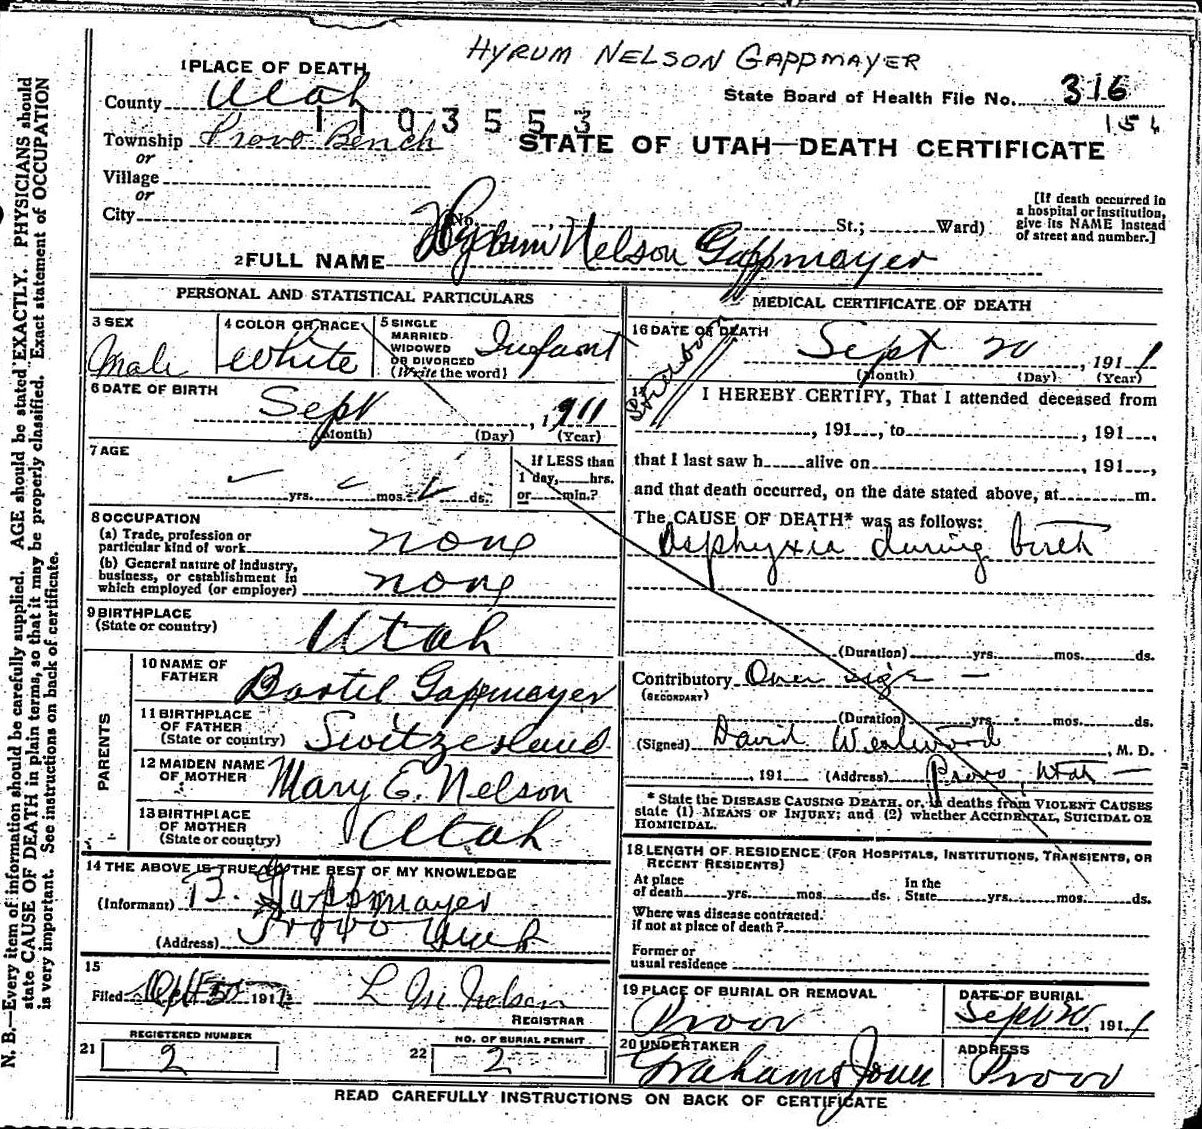 HYRUM NELSON GAPPMAYER
1 PLACE OF DEATH
County Utah
State Board of Health File No. 316
110353
Township Provo Bench
STATE OF UTAH—DEATH CERTIFICATE
or
Village
or
City
No.
St.; Ward)
[If death occurred in
a hospital or institution,
give its NAME instead
of street and number.]
2 FULL NAME Hyrum Nelson Gappmayer
PERSONAL AND STATISTICAL PARTICULARS
3 SEX
Male
4 COLOR OR RACE
White
5 SINGLE
MARRIED
WIDOWED
OR DIVORCED
(Write the word)
Infant
6 DATE OF BIRTH
Sept , 1911
(Month) (Day) (Year)
7 AGE
yrs. mos. ds.
If LESS than
1 day, hrs.
or min.?
8 OCCUPATION
(a) Trade, profession or
particular kind of work none
(b) General nature of industry,
business, or establishment in
which employed (or employer) none
9 BIRTHPLACE
(State or country) Utah
PARENTS
10 NAME OF
FATHER Bartel Gappmayer
11 BIRTHPLACE
OF FATHER
(State or country) Switzerland
12 MAIDEN NAME
OF MOTHER Mary E. Nelson
13 BIRTHPLACE
OF MOTHER
(State or country) Utah
14 THE ABOVE IS TRUE TO THE BEST OF MY KNOWLEDGE
(Informant) B. Gappmayer
(Address) Provo
15
Filed 191
REGISTRAR
REGISTERED NUMBER
21 2
NO. OF BURIAL PERMIT
22 2
MEDICAL CERTIFICATE OF DEATH
16 DATE OF DEATH
Sept 20 , 1911
(Month) (Day) (Year)
17
Stillborn
I HEREBY CERTIFY, That I attended deceased from
, 191 , to , 191 ,
that I last saw h alive on , 191 ,
and that death occurred, on the date stated above, at m.
The CAUSE OF DEATH* was as follows:
Asphyxia during birth
(Duration) yrs. mos. ds.
Contributory Over size
(SECONDARY)
(Duration) yrs. mos. ds.
(Signed) David Westwood , M. D.
, 191 (Address) Provo, Utah
* State the DISEASE CAUSING DEATH, or, in deaths from VIOLENT CAUSES
state (1) MEANS OF INJURY; and (2) whether ACCIDENTAL, SUICIDAL OR
HOMICIDAL.
18 LENGTH OF RESIDENCE (FOR HOSPITALS, INSTITUTIONS, TRANSIENTS, OR
RECENT RESIDENTS)
At place
of death yrs. mos. ds.
In the
State yrs. mos. ds.
Where was disease contracted.
if not at place of death?
Former or
usual residence
19 PLACE OF BURIAL OR REMOVAL
Provo
DATE OF BURIAL
Sept 20 , 1911
20 UNDERTAKER
Graham & Jones
ADDRESS
Provo
READ CAREFULLY INSTRUCTIONS ON BACK OF CERTIFICATE
N. B.—Every item of information should be carefully supplied. AGE should be stated EXACTLY. PHYSICIANS should
state CAUSE OF DEATH in plain terms, so that it may be properly classified. Exact statement of OCCUPATION
is very important. See instructions on back of certificate.